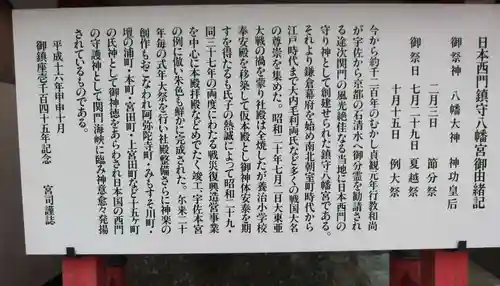 日本西門鎮守八幡宮御由緒記
御祭神　八幡大神　神功皇后
御祭日　二月三日　節分祭
七月二十九日　夏越祭
十月十五日　例大祭
今から約千二百年のむかし貞観元年行教和尚
が宇佐から京都の石清水へ御分霊を勧請され
る途次関門の風光絶佳なる当地に日本西門の
守り神として創建せられた鎮守八幡宮である。
それより鎌倉幕府を始め南北朝室町時代から
江戸時代まで大内毛利両氏など多くの戦国大名
の尊崇を集めた。昭和二十年七月二日大東亜
大戦の禍を蒙り社殿は全焼したが養治小学校
奉安殿を移築して仮本殿とし御神体安泰を期
すを得たるも氏子の熱誠によって昭和二十九・
同三十七年の両度にわたる戦災復興造営事業
を中心に本殿拝殿などめでたく竣工・宇佐本宮
の例に倣い朱色も鮮かに完成された。尓来二十
年毎の式年大祭を行い社殿整備さらに神楽の
創作もおこなわれ阿弥陀寺町・みもすそ川町・
壇の浦町・本町・宮田町・上宮田町など十五ヶ町
の氏神として御神徳をあらわされ日本国の西門
の守護神として関門海峡に臨み神意愈々発揚
されているものである。
平成十六年甲申十月
御鎮座壱千百四十五年記念　宮司謹誌